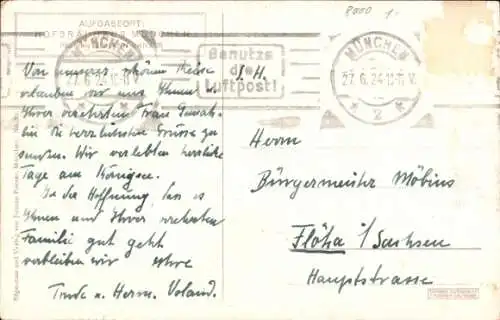 8000 1.-
AUFGABEORT:
HOFBRÄUHAUS MÜNCHEN
MÜNCHEN
27.6.24
Benutzt
die
Luftpost!
MÜNCHEN
27.6.24
2
Von unserer schönen Reise
erlauben wir uns Ihnen S. H.
Ihrer verehrten Frau Gemah-
lin die herzlichsten Grüsse zu
senden. Wir verlebten herrliche
Tage am Königsee.
In der Hoffnung, dass es
Ihnen und Ihrer verehrten
Familie gut geht
verbleiben wir Ihre
Trude u. Herm. Voland.
Herrn
Bürgermeister Möbius
Flöha i/Sachsen
Hauptstrasse